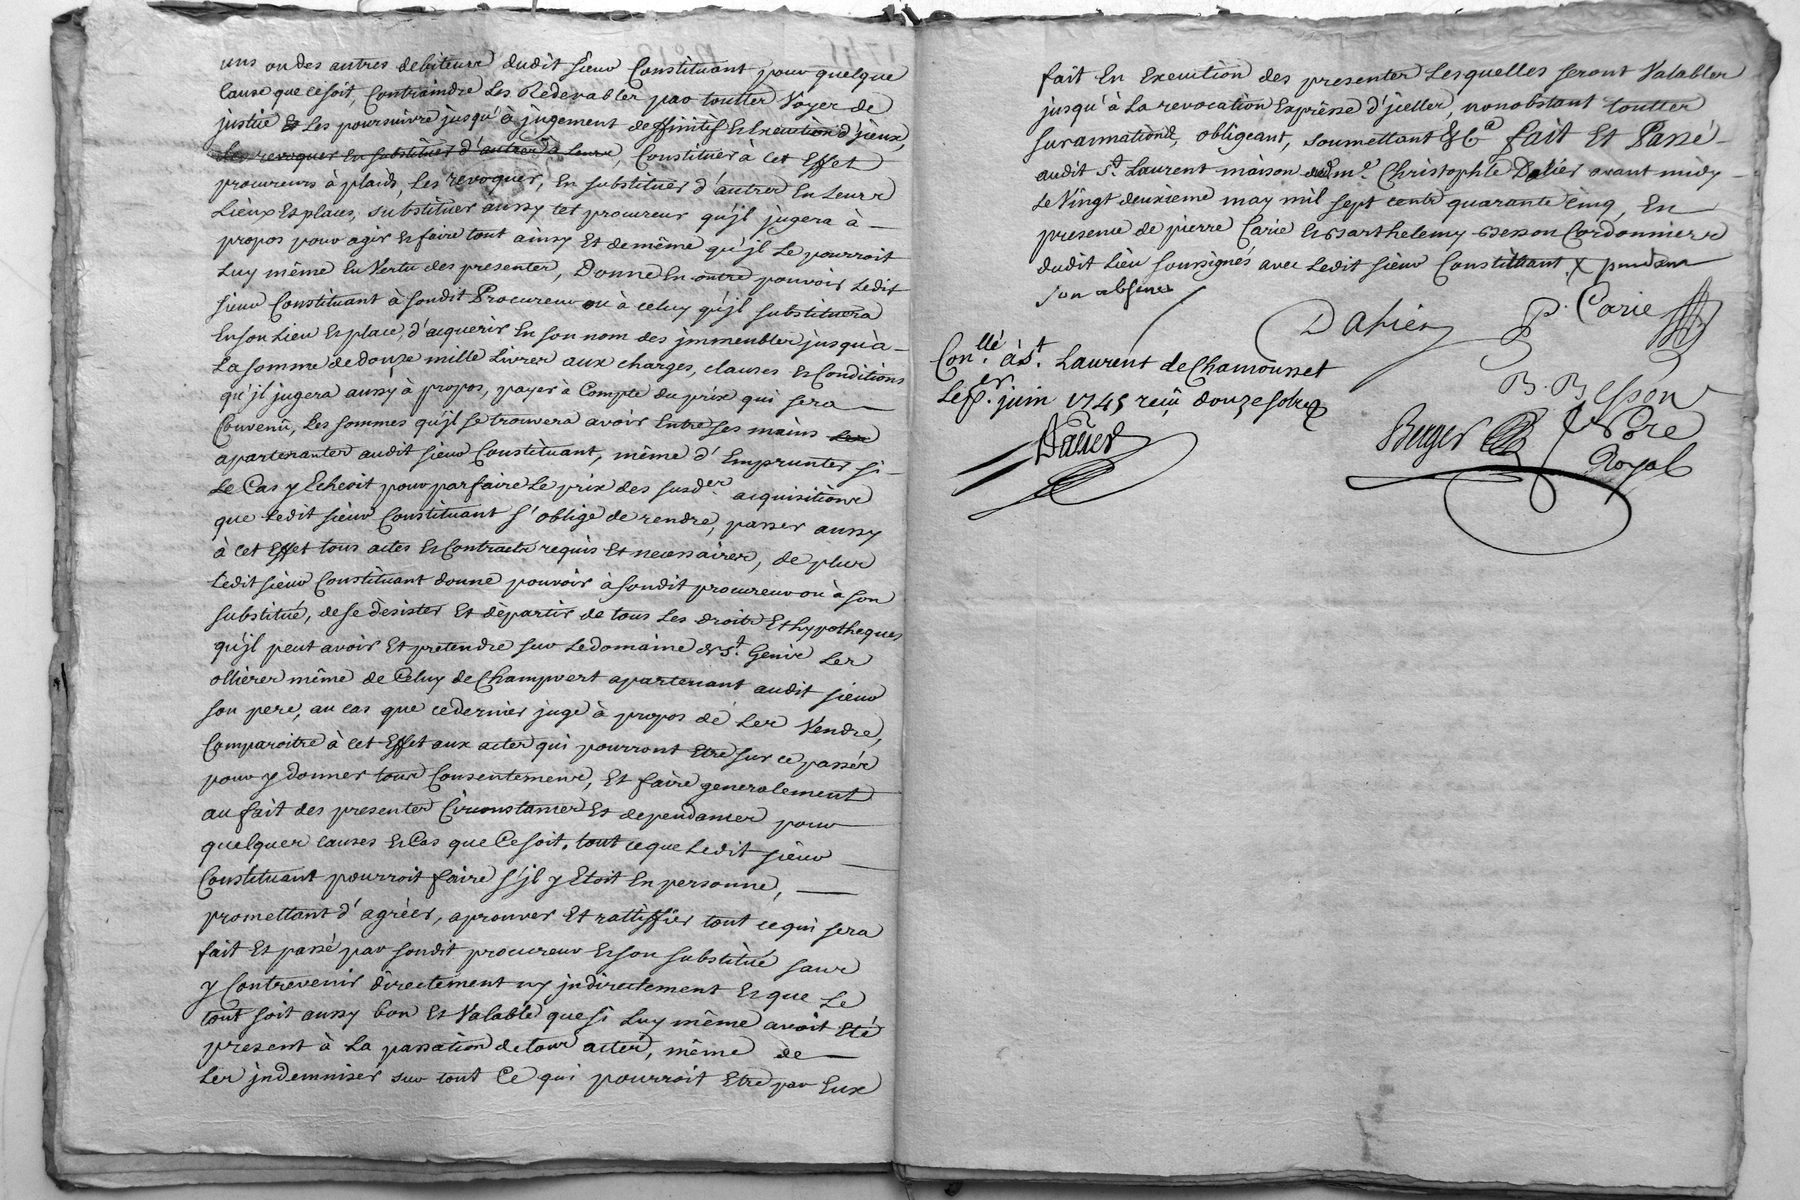 uns ou des autres debiteurs dudit sieur Constituant pour quelque
Cause que ce soit, Contraindre Les Redevables par touttes Voyes de
justice Et Les poursuivre jusqu'à jugement deffinitif Et Execution d'jceux,
Les revoquer En substituer d'autres à Leurs, Constituer à Cet Effet
procureurs à plaids, Les revoquer, En substituer d'autres En Leurs
Lieux Et places, substituer aussy tel procureur qu'jl jugera à
propos pour agir Et faire tout ainsy Et de même qu'jl Le pourroit
Luy même En Vertu des presentes, Donne En outre pouvoir Ledit
sieur Constituant à sondit Procureur ou à celuy qu'jl substituera
En son Lieu Et place, d'acquerir En son nom des jmmeubles jusqu'à
La somme de douze mille Livres aux charges, clauses Et Conditions
qu'jl jugera aussy à propos, payer à Compte du prix qui sera
Convenû, Les sommes qu'jl se trouvera avoir Entre ses mains
apartenantes audit sieur Constituant, même d'Emprunter si
Le Cas y Echeoit pour parfaire Le prix des susd.es acquisitions
que Ledit sieur Constituant s'oblige de rendre, passer aussy
à cet Effet tous actes Et Contracts requis Et necessaires, de plus
Ledit sieur Constituant donne pouvoir à sondit procureur ou à son
substitué, de se desister Et départir de tous Les droits Et hypotheques
qu'jl peut avoir Et pretendre sur Le domaine de St. Genis Les
ollieres même de Celuy de Champvert apartenant audit sieur
son pere, au cas que ce dernier juge à propos de Les Vendre,
Comparoitre à cet Effet aux actes qui pourront Etre sur ce passés
pour y donner tous Consentements, Et faire generalement
au fait des presentes Circonstances Et dependances pour
quelques causes Et Cas que Ce soit, tout ce que Ledit sieur
Constituant pourroit faire s'jl y Etoit En personne,
promettant d'agréer, aprouver Et rattiffier tout ce qui sera
fait Et passé par sondit procureur Et son substitué sans
y Contrevenir directement ny jndirectement Et que Le
tout soit aussy bon Et Valable que si Luy même avoit Eté
present à La passation de tous actes, même de
Les jndemniser sur tout Ce qui pourroit Etre par Eux
fait En Execution des presentes Lesquelles seront Valables
jusqu'à La revocation Expresse d'jcelles, nonobstant touttes
surannations, obligeant, soumettant &Ca fait Et Passé
audit St. Laurent maison de me. Christophle Dalier avant midy
Le Vingt deuxieme may mil sept cents quarante cinq, En
presence de pierre Carie Et Barthelemy Besson Cordonniers
dudit Lieu soussignés avec Ledit sieur Constituant X pendant
son absence
Dalier
P. Carie
Con.llé à St. Laurent de Chamousset
Le pr. juin 1745 reçû douze sols
B. Besson
Dalier
Berger
Nore
Royal